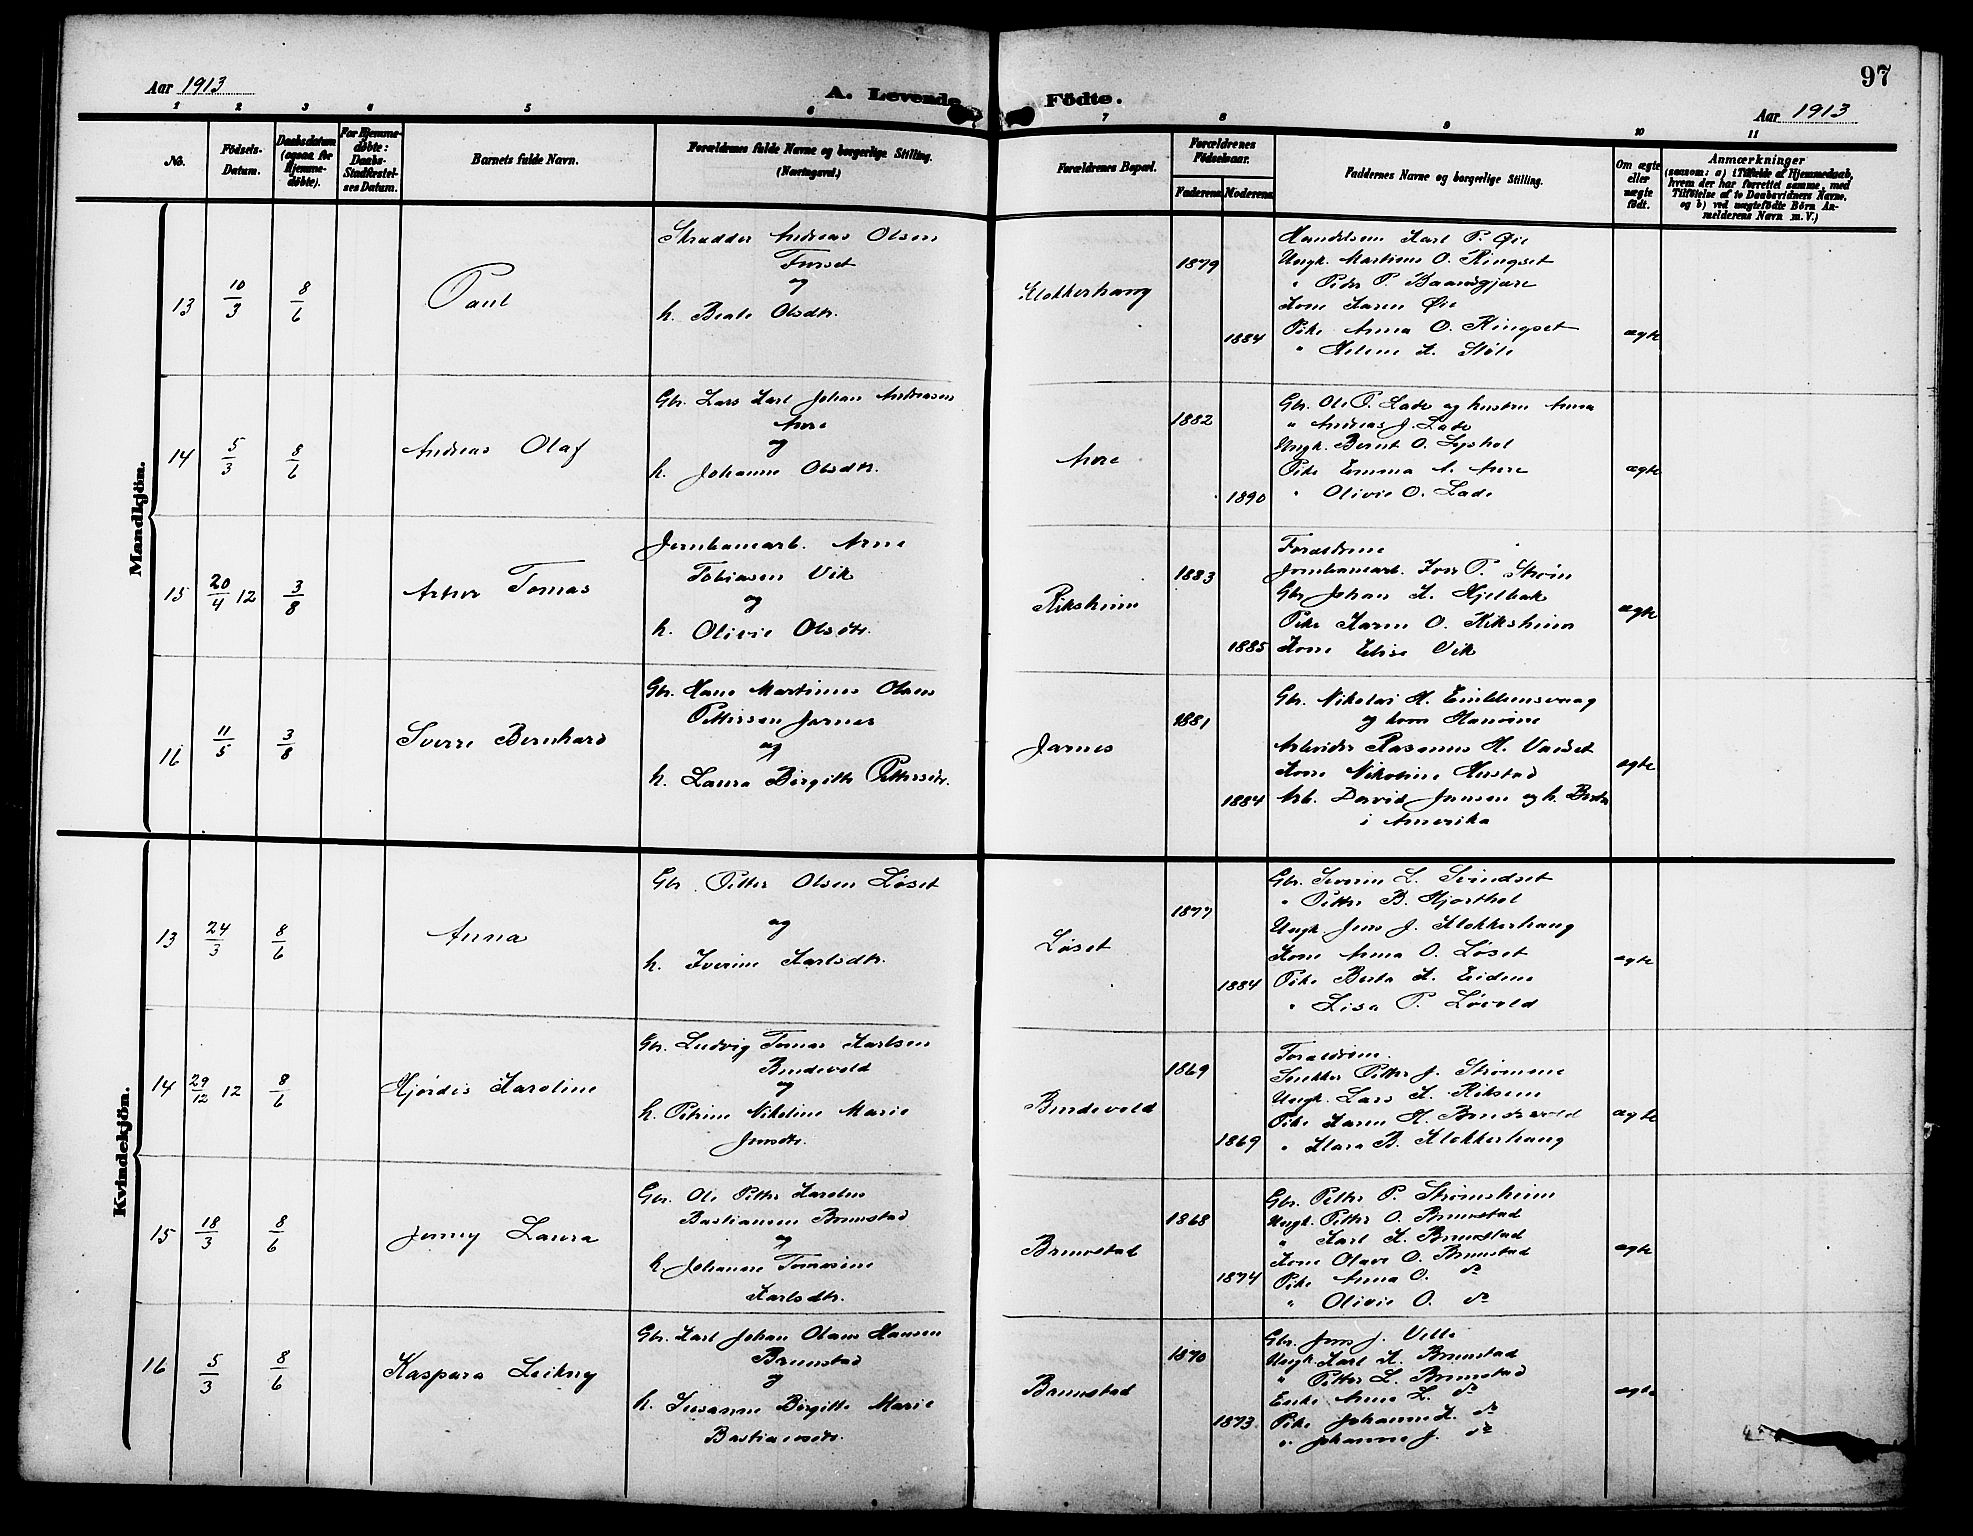 Aar 1913
A. Levende Födte.
97
Aar 1913
1 2 3 4 5 6 7 8 9 10 11
No.
Födsels-Datum.
Daabsdatum (ogsaa for Hjemme-döbte).
For Hjemme-döbte: Daabs-Stadfæstel-ses Datum.
Barnets fulde Navn.
Forældrenes fulde Navne og borgerlige Stilling. (Næringsvei.)
Forældrenes Bopæl.
Forældrenes Födselsaar.
Faderens Moderens
Faddernes Navne og borgerlige Stilling.
Om ægte eller uægte födt.
Anmærkninger
(saasom: a) i Tilfælde af Hjemmedaab, hvem der har forrettet samme, med Tilföielse af to Daabsvidners Navne, og b) ved uægtefödte Börn An-melderens Navn m. V.)
Mandkjön.
13 10/3 8/6 Paul
Skrædder Andreas Olsen
Furset
og
h. Beate Olsdtr.
Klokkerhaug
1879
1884
Handelsm Karl P. Øie
Ungk. Martinus O. Ringset
" Peder P. Baardgjære
Kone Karen Øie
Pike Anna O. Ringset
" Helene K. Støle
ægte
14 5/3 8/6 Andreas Olaf
Gbr. Lars Karl Johan Andreasen
Aure
og
h. Johanne Olsdtr.
Aure
1882
1890
Gbr. Ole P. Lade og hustru Anna
" Andreas J. Lade
Ungk. Bernt O.
Pike Emma A. Aure
" Olivie O. Lade
ægte
15 20/4 12 3/8 Arthur Tomas
Jernbanearb. Arne
Tobiasen Vik
og
h. Olivie Olsdtr.
Riksheim
1883
1885
Forældrene
Jernbanearb. Iver P. Strøm
Gbr Johan K. Hjelbak
Pike Karen O. Riksheim
Kone Elise Vik
ægte
16 11/5 3/8 Sverre Bernhard
Gbr. Hans Martinus Olsen
Pettersen Jarnes
og
h. Laura Birgitte Pettersdtr.
Jarnes
1881
1884
Gbr. Nikolai H. Emblemsvaag
og kone Hansine
Arbeider Rasmus H. Vadset
Kone Nikoline Hustad
Arb. David Jensen og h. Berte
i Amerika
ægte
Kvindekjön.
13 24/3 8/6 Anna
Gbr. Petter Olsen Løset
og
h. Iverine Karlsdtr.
Løset
1877
1884
Gbr. Severin L. Svindset
" Petter B. Hjorthol
Ungk Jens J. Klokkerhaug
Kone Anna O. Løset
Pike Berta K. Eidem
" Lisa P. Løvold
ægte
14 29/12 12 8/6 Hjørdis Karoline
Gbr. Ludvig Tomas Karlsen
Brudevold
og
h. Petrine Nikoline Marie
Jensdtr.
Brudevold
1869
1869
Forældrene.
Snekker Petter J. Strømme
Ungk. Lars K. Riksem
Pike Karen H. Brudevold
" Klara B. Klokkerhaug
ægte
15 18/3 8/6 Jenny Laura
Gbr. Ole Petter Karolus
Bastiansen Brunstad
og
h. Johanne Tomasine
Karlsdtr.
Brunstad
1868
1874
Gbr. Petter P. Strømsheim
Ungk. Petter O. Brunstad
" Karl K. Brunstad
Kone Olave O. Brunstad
Pike Anna O. do
" Olivie O. do
ægte
16 5/3 8/6 Kaspara Leikny
Gbr. Karl Johan Olaus Hansen
Brunstad
og
h. Susanne Birgitte Marie
Bastiansdtr.
Brunstad
1870
1873
Gbr. Jens J. Velle
Ungk. Karl K. Brunstad
" Petter L. Brunstad
Enke Anne L. do
Pike Johanne K. do
" Johanne J. do
ægte